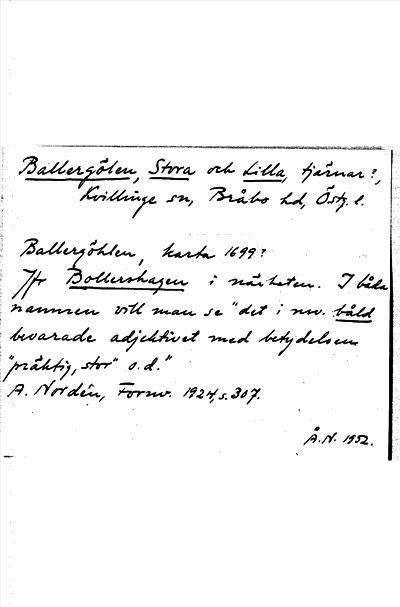 Ballergölen, Stora och Lilla, tjärnar?,
Kvillinge sn, Bråbo hd, Östg. l.
Ballergöhlen, karta 1699?
Jfr Bollershagen i närheten. I båda
namnen vill man se "det i nw. båld
bevarade adjektivet med betydelsen
"präktig, stor" o.d."
A. Nordén, Fornv. 1924, s. 307.
Å.N. 1952.